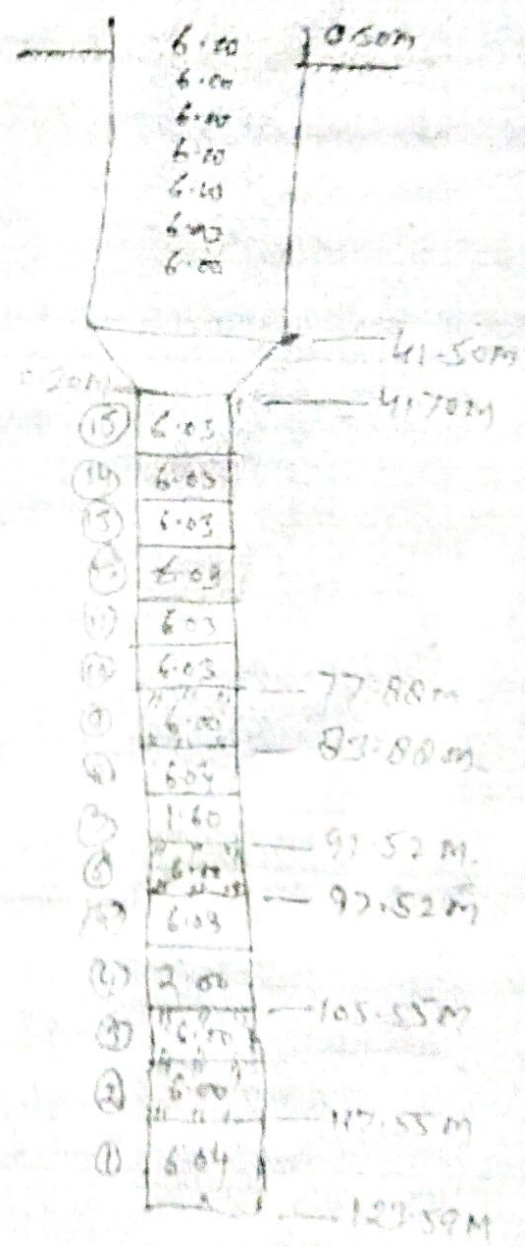 6.00 0.50m
6.00
6.00
6.00
6.00
6.00
6.00
41.50m
0.20m 41.70m
15 6.03
14 6.03
13 6.03
12 6.03
11 6.03
10 6.03
77.88m
9 6.00
83.88m
8 6.04
7 1.60
91.52 M.
6 6.00
97.52m
5 6.03
4 2.00
105.55m
3 6.00
2 6.00
117.55m
1 6.04
123.59M